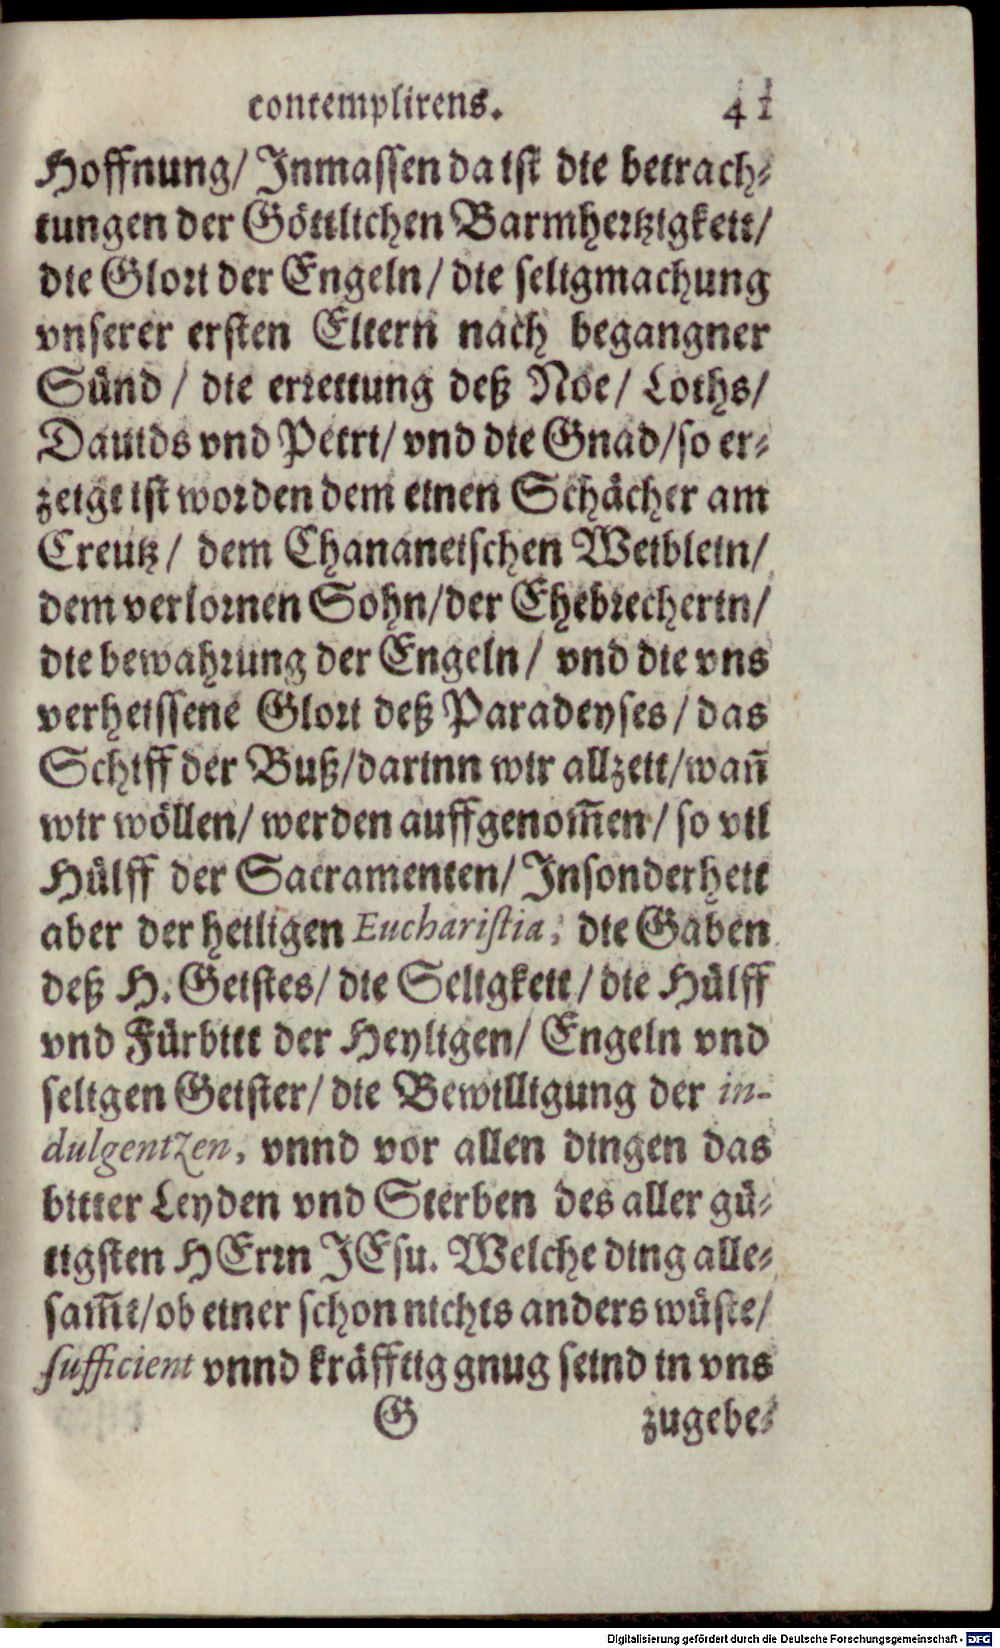 contemplirens. 41
Hoffnung/ Inmassen da ist die betrach-
tungen der Göttlichen Barmhertzigkeit/
die Glori der Engeln/ die seligmachung
vnserer ersten Eltern nach begangner
Sünd/ die errettung deß Noe/ Loths/
Dauids vnd Petri/ vnd die Gnad/ so er-
zeigt ist worden dem einen Schächer am
Creutz/ dem Chananeischen Weiblein/
dem verlornen Sohn/ der Ehebrecherin/
die bewahrung der Engeln/ vnd die vns
verheissene Glori deß Paradeyses/ das
Schiff der Buß/ darinn wir allzeit/ wañ
wir wöllen/ werden auffgenom̃en/ so vil
Hülff der Sacramenten/ Insonderheit
aber der heiligen Eucharistia, die Gaben
deß H. Geistes/ die Seligkeit/ die Hülff
vnd Fürbitt der Heyligen/ Engeln vnd
seligen Geister/ die Bewilligung der in-
dulgentzen, vnnd vor allen dingen das
bitter Leyden vnd Sterben des aller gü-
tigsten HErrn JEsu. Welche ding alle-
sam̃t/ ob einer schon nichts anders wüste/
sufficient vnnd kräfftig gnug seind in vns
G zugebe-
Digitalisierung gefördert durch die Deutsche Forschungsgemeinschaft - DFG